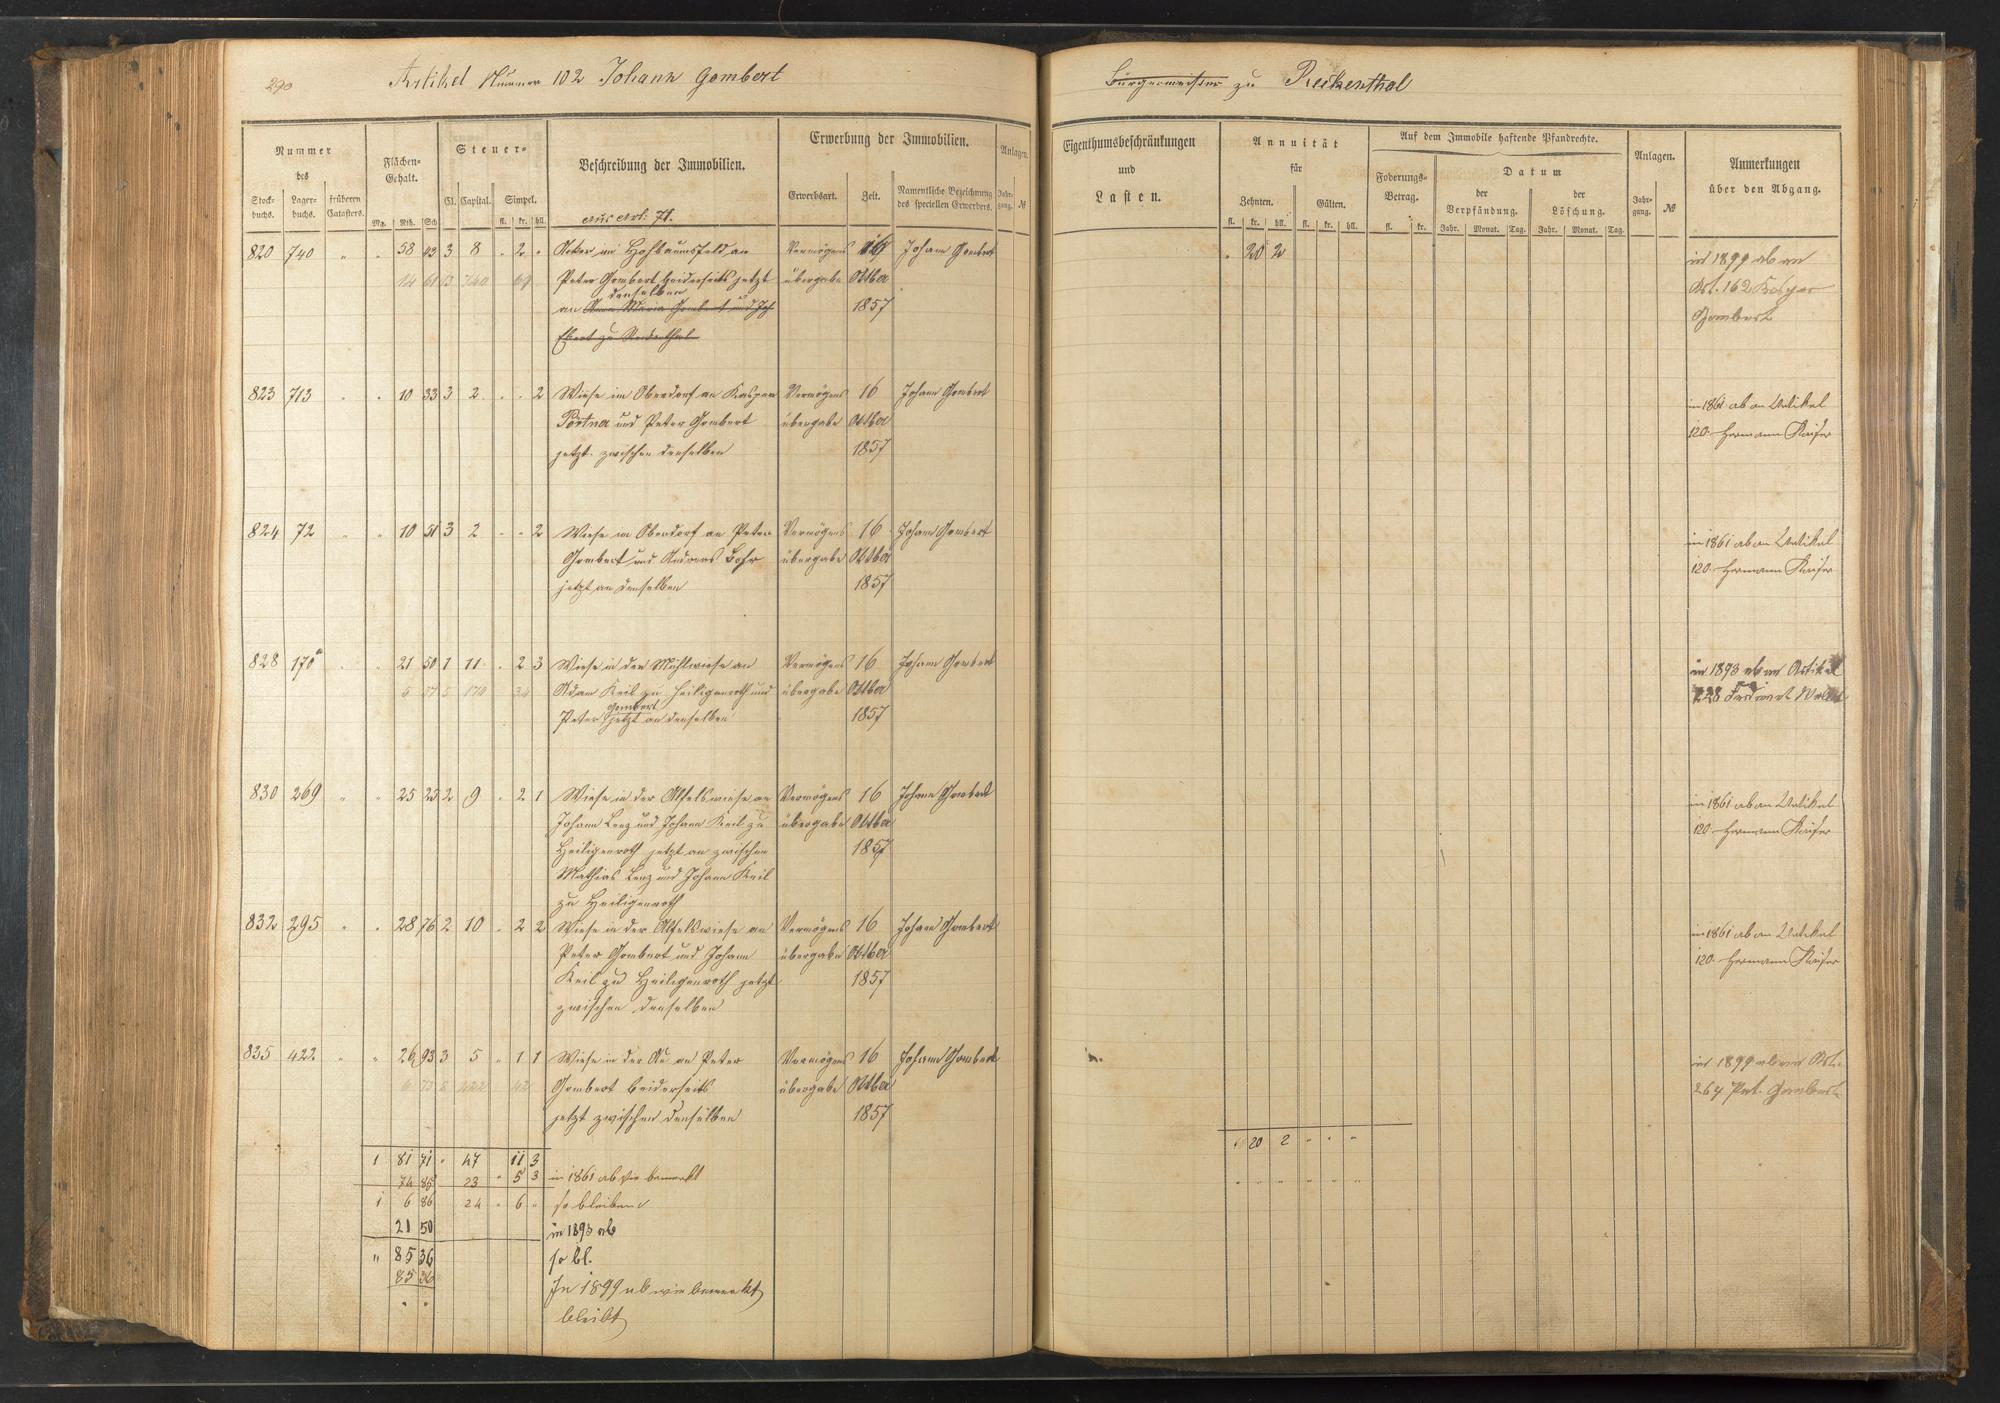 290
Artikel Nummer 102 Johann Gombert
Bürgermeister zu Reckenthal
Nummer des
Stock- buchs. Lager- buchs. früheren Catasters.
Flächen- Gehalt.
Mg. Rth. Sch
Steuer-
Cl. Capital. Simpel.
fl. kr. hll.
Beschreibung der Immobilien.
Erwerbung der Immobilien.
Erwerbsart. Zeit. Namentliche Bezeichnung des speciellen Erwerbers.
Anlagen.
Jahr- gang. №
Eigenthumsbeschränkungen
und
Lasten.
Annuität
für
Zehnten. Gülten.
fl. kr. hll. fl. kr. hll.
Auf dem Immobile haftende Pfandrechte.
Foderungs- Betrag.
fl. kr.
Datum
der Verpfändung. der Löschung.
Jahr. Monat. Tag. Jahr. Monat. Tag.
Anlagen.
Jahr- gang. №
Anmerkungen
über den Abgang.
aus Art: 71.
820 740 " " 58 43 3 8 " 2 " Acker im Hofbaumsfeld an Vermögens 16 Johann Gombert " 20 2 in 1899 ab an
14 61 69 Peter Gombert beiderseits jetzt übergabe Octber Art. 162 Kaspar
denselben
an Anna Maria Gombert und Joh 1857 Gombert
Ebert zu Reckenthal
823 713 " " 10 33 3 2 " " 2 Wiese im Oberdorf an Kaspar Vermögens 16 Johann Gombert in 1861 ab an Artikel
Portner und Peter Gombert übergabe Octber 120 Hermann Kaiser
jetzt zwischen denselben 1857
824 72 " " 10 51 3 2 " " 2 Wiese im Oberdorf an Peter Vermögens 16 Johann Gombert in 1861 ab an Artikel
Gombert und Andreas Bohr übergabe Octber 120 Hermann Kaiser
jetzt an denselben 1857
828 170a " " 21 50 1 11 " 2 3 Wiese in der Mühlwiese an Vermögens 16 Johann Gombert in 1893 ab an Artikel
Adam Keil zu Heiligenroth und übergabe Octber 228
Gombert
Peter jetzt an denselben 1857
830 269 " " 25 25 2 9 " 2 1 Wiese in der Alfelswiese an Vermögens 16 Johann Gombert in 1861 ab an Artikel
Johann Lenz und Johann Keil zu übergabe Octber 120 Hermann Kaiser
Heiligenroth jetzt an zwischen 1857
Mathias Lenz und Johann Keil
zu Heiligenroth
832 295 " " 28 76 2 10 " 2 2 Wiese in der Alfelswiese an Vermögens 16 Johann Gombert in 1861 ab an Artikel
Peter Gombert und Johann übergabe Octber 120 Hermann Kaiser
Keil zu Heiligenroth jetzt 1857
zwischen denselben
835 422 " " 26 93 3 5 " 1 1 Wiese in der Au an Peter Vermögens 16 Johann Gombert in 1899 ab an Art.
Gombert beiderseits übergabe Octber 264 Pet. Gombert
jetzt zwischen denselben 1857
1 81 71 " 47 11 3 20 2 " " "
74 85 23 " 5 3 in 1861 ab wie bemerkt
1 6 86 24 " 6 " so bleiben
21 50 in 1893 ab
" 85 36 so bl.
85 36 In 1899 ab wie bemerkt
" " bleibt